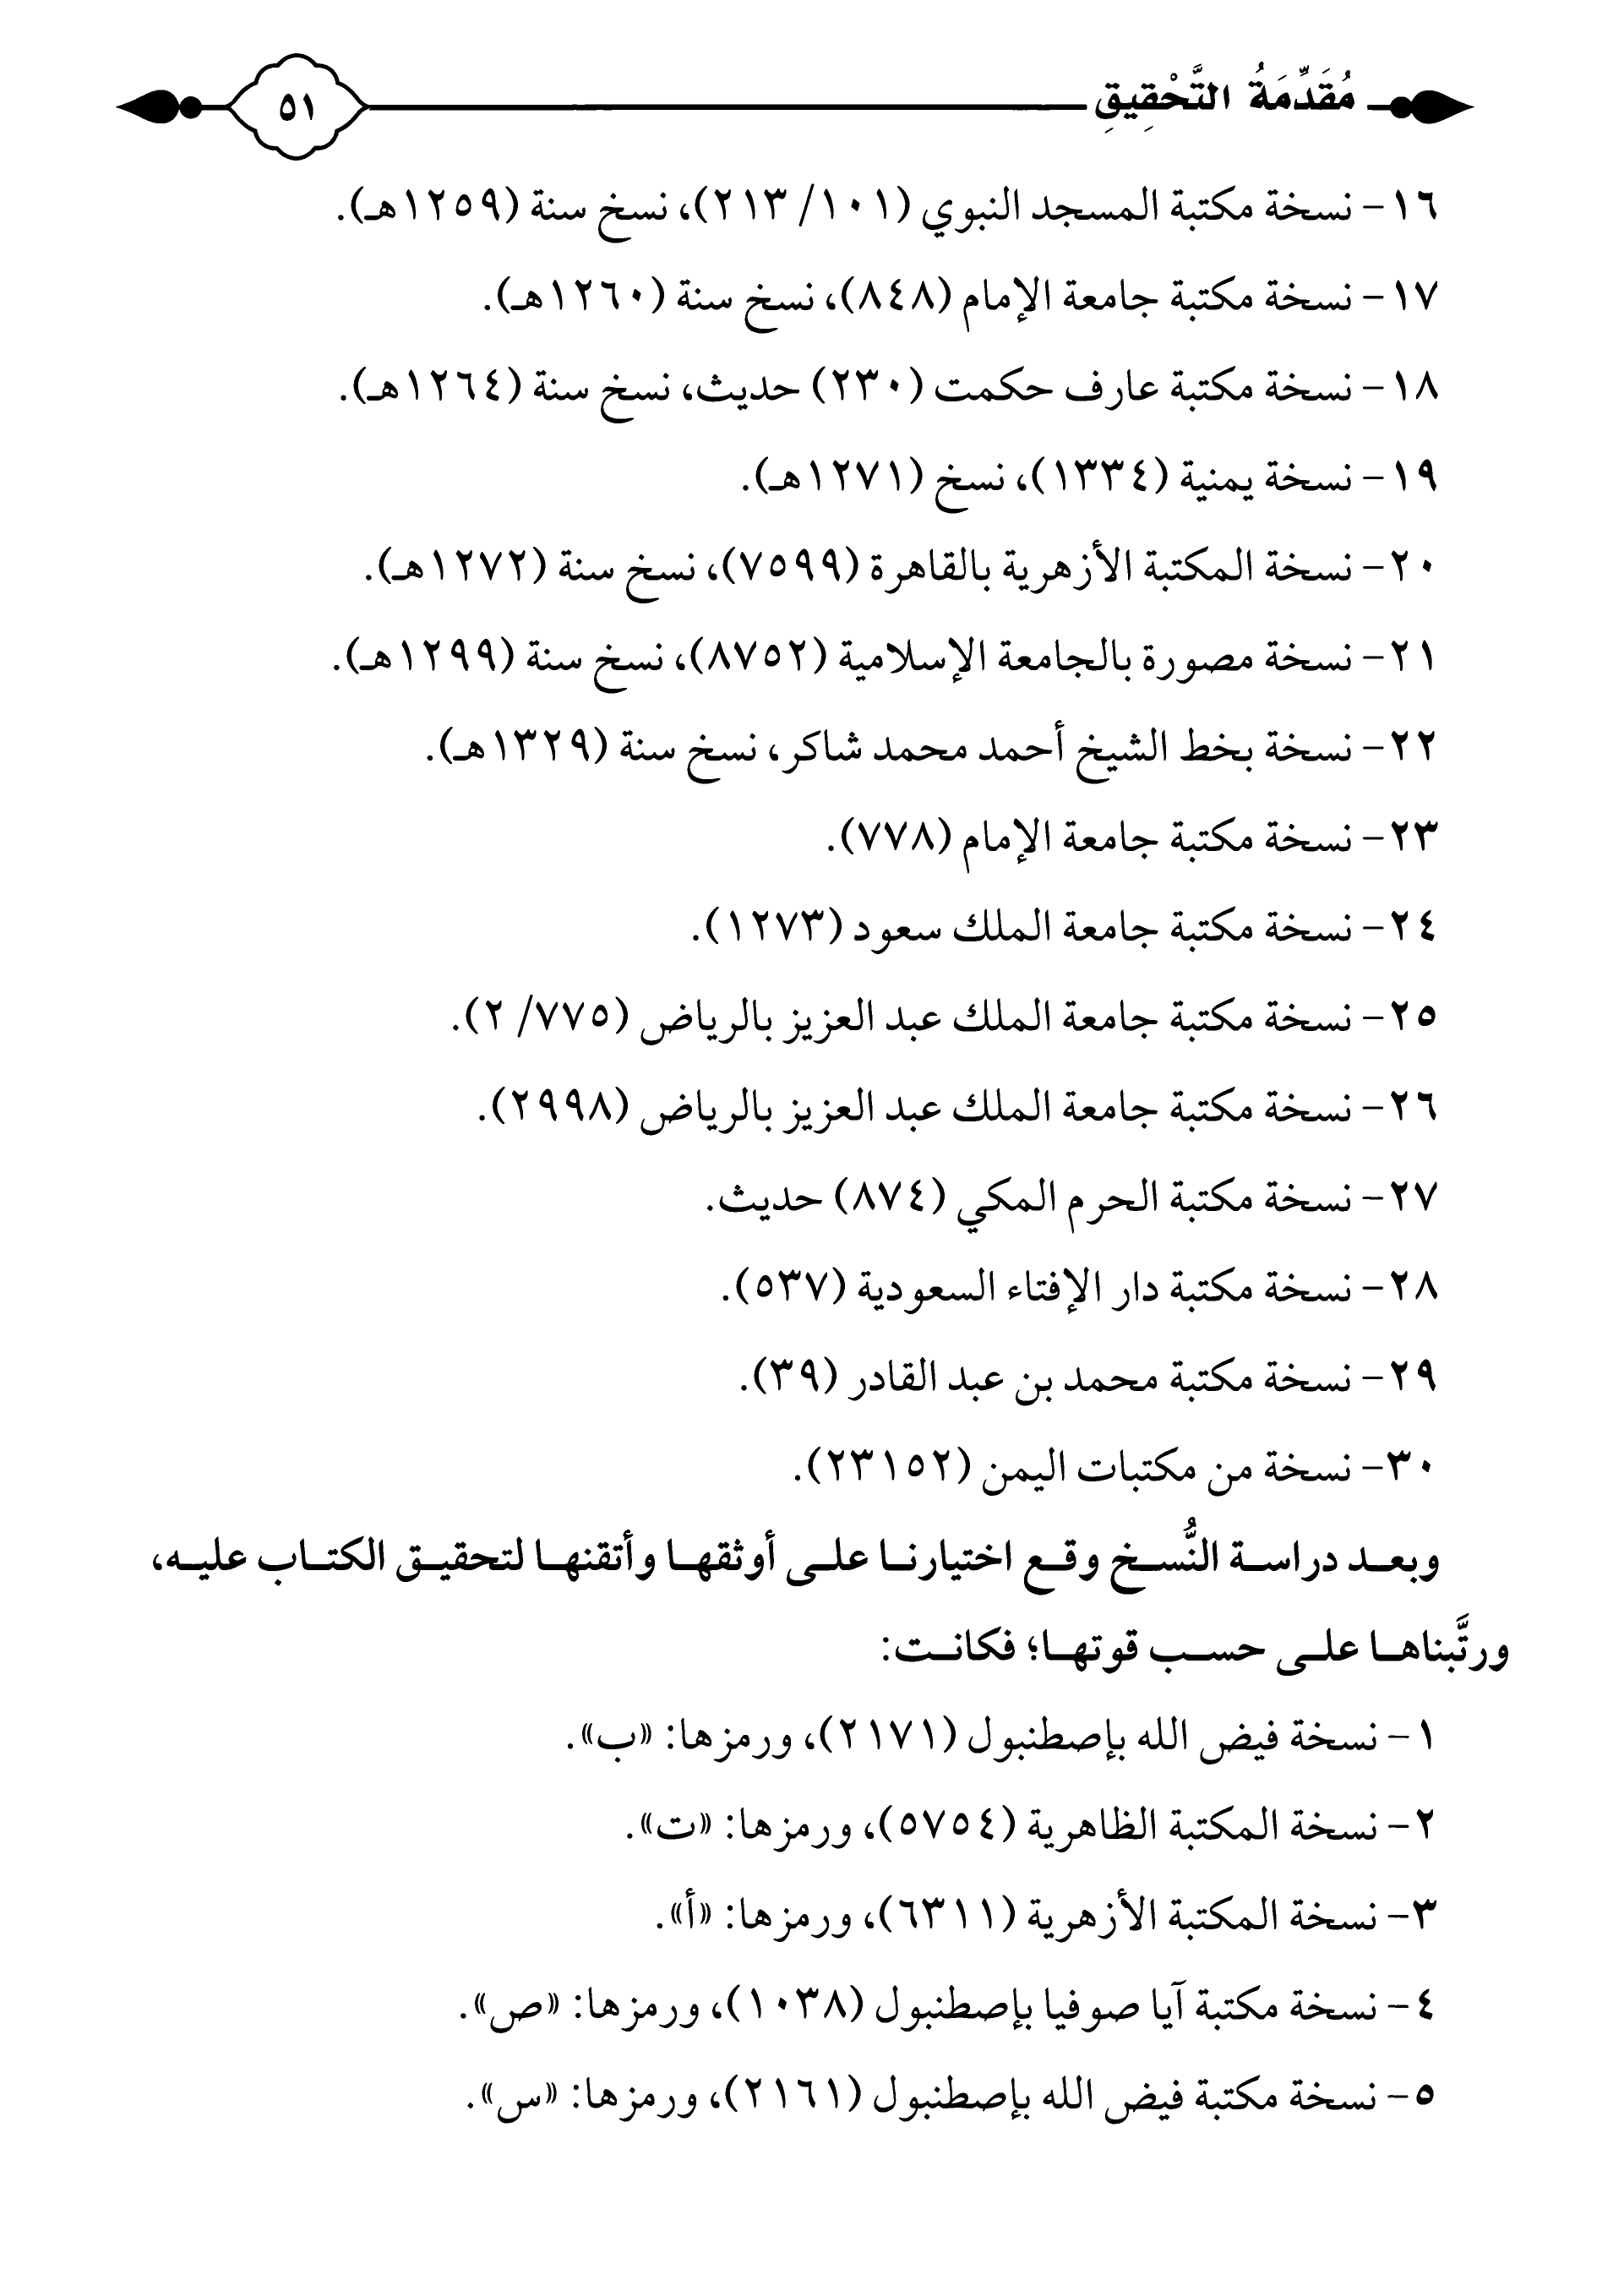 مُقَدِّمَةُ التَّحْقِيقِ ٥١
١٦- نسخة مكتبة المسجد النبوي (١٠١/ ٢١٣)، نسخ سنة (١٢٥٩هـ).
١٧- نسخة مكتبة جامعة الإمام (٨٤٨)، نسخ سنة (١٢٦٠هـ).
١٨- نسخة مكتبة عارف حكمت (٢٣٠) حديث، نسخ سنة (١٢٦٤هـ).
١٩- نسخة يمنية (١٣٣٤)، نسخ (١٢٧١هـ).
٢٠- نسخة المكتبة الأزهرية بالقاهرة (٧٥٩٩)، نسخ سنة (١٢٧٢هـ).
٢١- نسخة مصورة بالجامعة الإسلامية (٨٧٥٢)، نسخ سنة (١٢٩٩هـ).
٢٢- نسخة بخط الشيخ أحمد محمد شاكر، نسخ سنة (١٣٢٩هـ).
٢٣- نسخة مكتبة جامعة الإمام (٧٧٨).
٢٤- نسخة مكتبة جامعة الملك سعود (١٢٧٣).
٢٥- نسخة مكتبة جامعة الملك عبد العزيز بالرياض (٧٧٥/ ٢).
٢٦- نسخة مكتبة جامعة الملك عبد العزيز بالرياض (٢٩٩٨).
٢٧- نسخة مكتبة الحرم المكي (٨٧٤) حديث.
٢٨- نسخة مكتبة دار الإفتاء السعودية (٥٣٧).
٢٩- نسخة مكتبة محمد بن عبد القادر (٣٩).
٣٠- نسخة من مكتبات اليمن (٢٣١٥٢).
وبعد دراسة النُّسخ وقع اختيارنا على أوثقها وأتقنها لتحقيق الكتاب عليه،
ورتَّبناها على حسب قوتها؛ فكانت:
١- نسخة فيض الله بإصطنبول (٢١٧١)، ورمزها: «ب».
٢- نسخة المكتبة الظاهرية (٥٧٥٤)، ورمزها: «ت».
٣- نسخة المكتبة الأزهرية (٦٣١١)، ورمزها: «أ».
٤- نسخة مكتبة آيا صوفيا بإصطنبول (١٠٣٨)، ورمزها: «ص».
٥- نسخة مكتبة فيض الله بإصطنبول (٢١٦١)، ورمزها: «س».